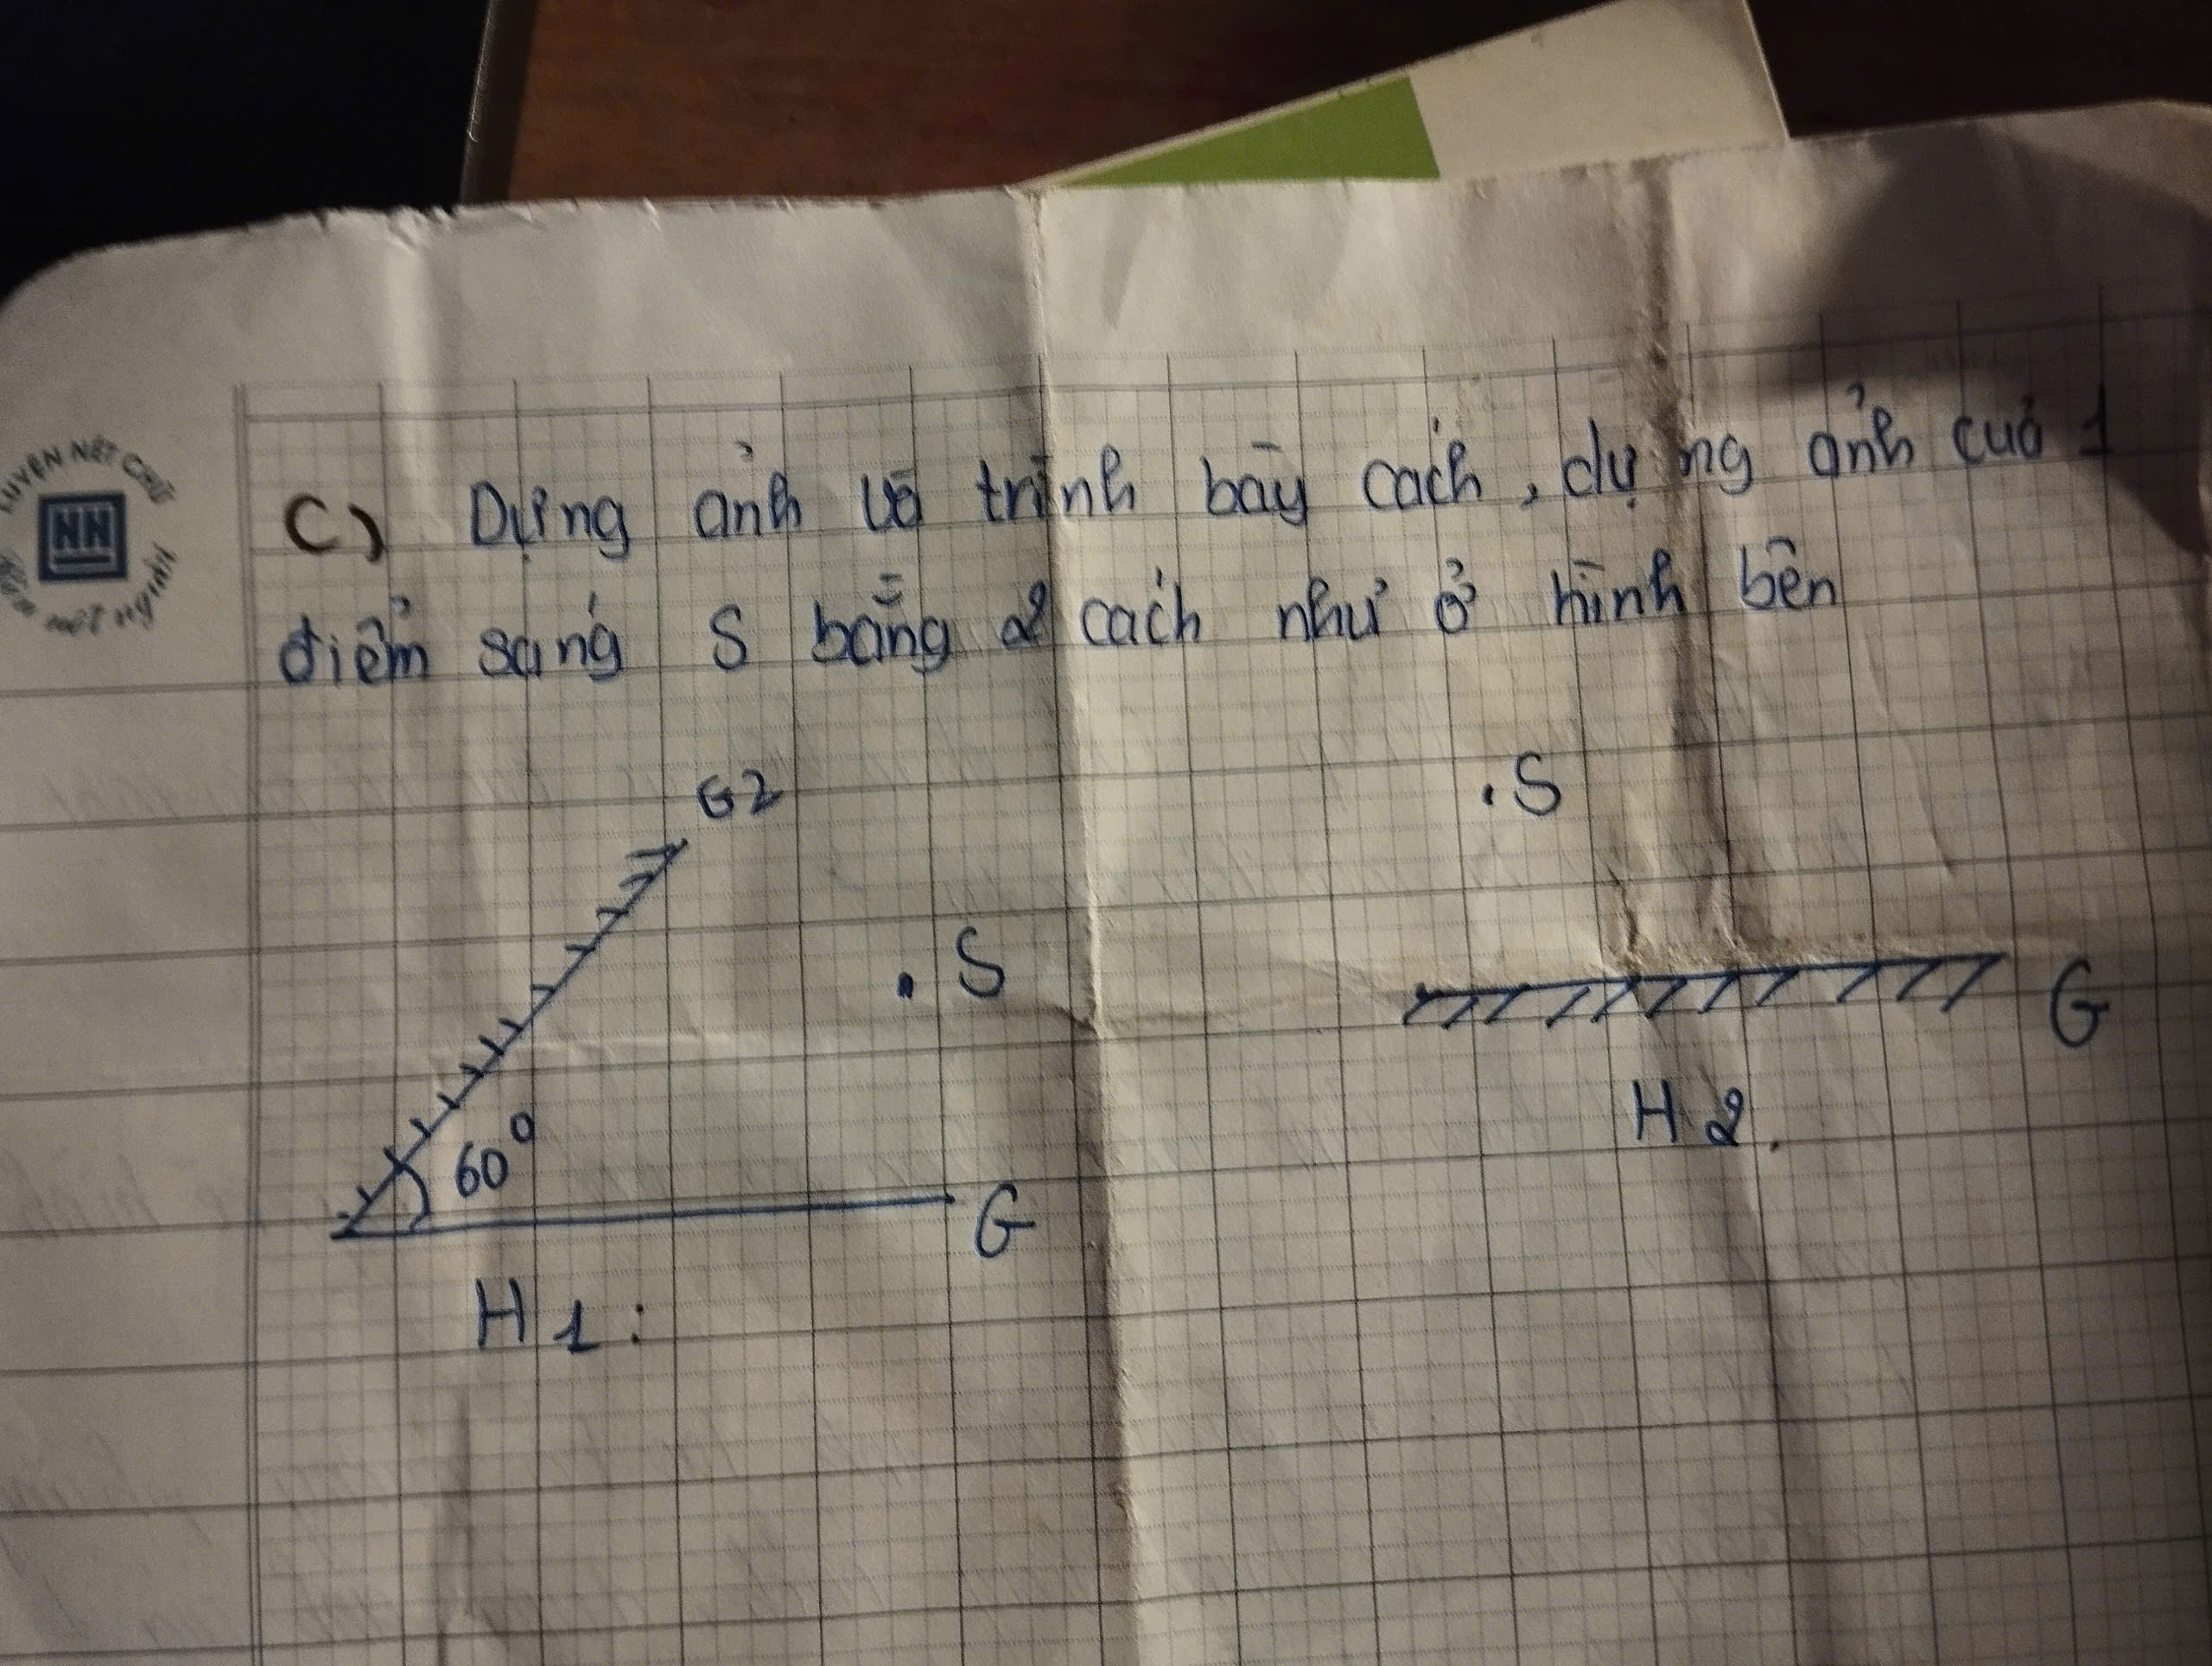 LUYỆN NÉT CHỮ
NN
NẾT NGƯỜI
C) Dựng ảnh và trình bày cách, dựng ảnh của 1
điểm sáng S bằng 2 cách như ở hình bên
G2
.S
.S
G
60°
G
H 2.
H 1: